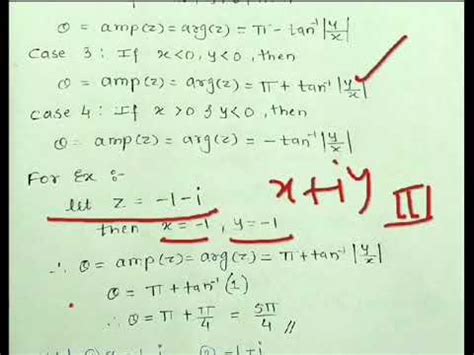 θ = amp(z) = arg(z) = π - tan⁻¹|y/x|
Case 3 : If x<0, y<0, then
θ = amp(z) = arg(z) = π + tan⁻¹|y/x|
Case 4 : If x >0 & y<0, then
θ = amp(z) = arg(z) = -tan⁻¹|y/x|
For Ex :-
let z = -1-i
x+iy
III
then x = -1, y = -1
∴ θ = amp(z) = arg(z) = π + tan⁻¹|y/x|
θ = π + tan⁻¹(1)
∴ θ = π + π/4 = 5π/4 //